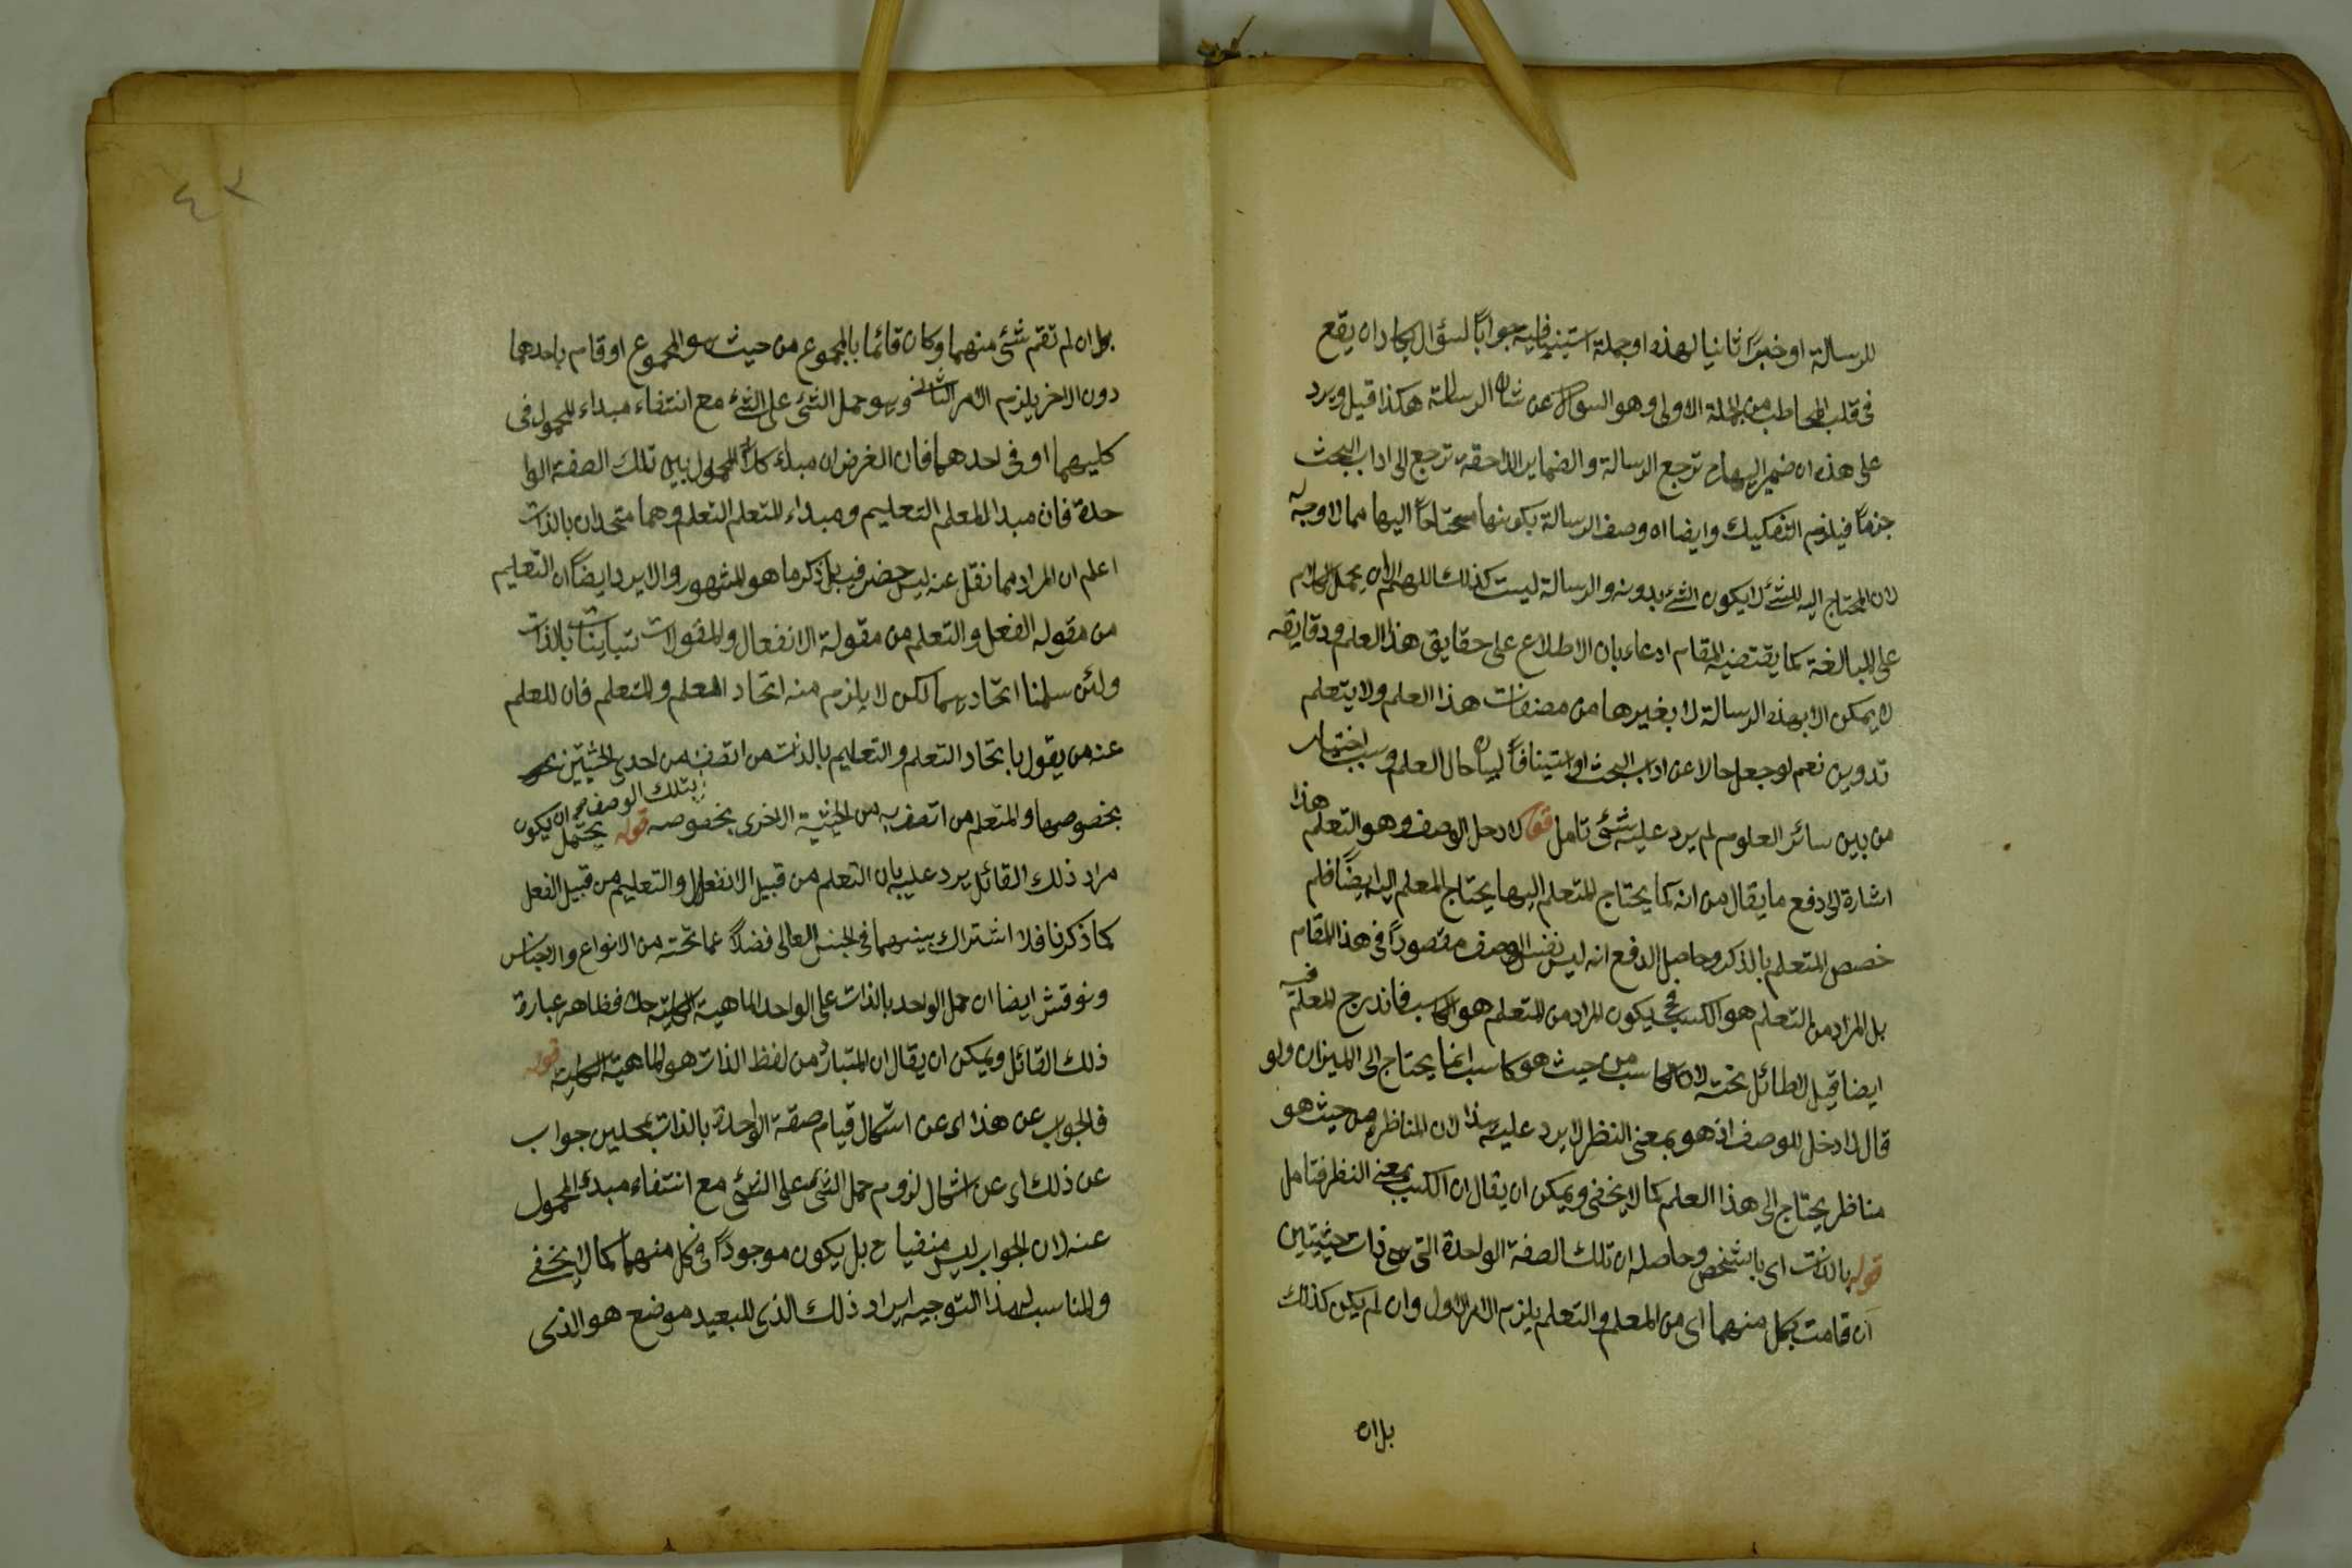 للرسالة او خبرًا ثانيا لهذه او جملة استينافية جوابًا لسؤال يكاد ان يقع
فى قلب المخاطب من الجملة الاولى وهو السؤال عن شان الرسالة هكذا قيل ويرد
على هذه ان ضمير اليها ح ترجع الرسالة والضماير اللاحقة ترجع الى اداب البحث
جزمًا فيلزم التفكيك وايضا ان وصف الرسالة بكونها محتاجًا اليها مما لا وجه له
لان المحتاج اليه للشئ لا يكون الشئ بدونه والرسالة ليست كذلك اللهم الا ان يحمل الكلام
على المبالغة كما يقتضيه المقام ادعاء بان الاطلاع على حقايق هذا العلم ودقايقه
لا يمكن الا بهذه الرسالة لا بغيرها من مصنفات هذا العلم ولا يتعلم
تدوين نعم لو جعل حالا عن اداب البحث او استينافًا لبيان حال العلم وسبب اختيار
هذا
من بين سائر العلوم لم يرد عليه شئ تامل قوله لا دخل الوصف وهو التعلم
اشارة الى دفع ما يقال من انه كما يحتاج المتعلم اليها يحتاج المعلم اليه ايضًا فلم
خصص المتعلم بالذكر وحاصل الدفع انه ليس نفس الوصف مقصورًا فى هذا المقام
بل المراد من التعلم هو الكسب فح يكون المراد من المتعلم هو الكاسب فاندرج المعلم فيه
ايضا قيل لا طائل تحته لان الكاسب من حيث هو كاسب انما يحتاج الى الميزان ولو
قال لا دخل للوصف اذ هو بمعنى النظر لا يرد عليه هذا لان المناظر من حيث هو
مناظر يحتاج الى هذا العلم كما لا يخفى ويمكن ان يقال ان الكسب بمعنى النظر فتامل
قوله بالذات اى بالشخص وحاصله ان تلك الصفة الواحدة التى هى ذات حيثيتين
ان قامت بكل منهما اى من المعلم والتعلم يلزم الامر الاول وان لم يكن كذلك
بل ان
٤٣
بل ان لم تقم شئ منهما وكان قائما بالمجموع من حيث هو المجموع او قام باحدهما
دون الاخر يلزم الامر الثانى وهو حمل الشئ على الشئ مع انتفاء مبداء المحمول فى
كليهما او فى احدهما فان الغرض ان مبداء كلا المحمولين تلك الصفة الوا
حدة فان مبدا المعلم التعليم ومبداء المتعلم التعلم وهما متحدان بالذات
اعلم ان المراد مما نقل عنه ليس حضر فيه بل ذكر ما هو المشهور والا يرد ايضًا ان التعليم
من مقوله الفعل والتعلم من مقولة الانفعال والمقولات تباينات بالذات
ولئن سلمنا اتحادهما لكن لا يلزم منه اتحاد المعلم والمتعلم فان المعلم
عند من يقول باتحاد التعلم والتعليم بالذات من اتصف من احدى الحيثيتين
بتلك الوصف
بخصوصها والمتعلم من اتصف به من الحيثية الاخرى بخصوصه قوله يحتمل ان يكون
مراد ذلك القائل يرد عليه بان التعلم من قبيل الانفعال والتعليم من قبيل الفعل
كما ذكرنا فلا اشتراك بينهما فى الجنس العالى فضلًا عما تحته من الانواع والاجناس
ونوقش ايضا ان حمل الواحد بالذات على الواحد الماهية الكلية خلاف ظاهر عبارة
ذلك القائل ويمكن ان يقال ان المتبادر من لفظ الذات هو الماهية الكلية قوله
فالجواب عن هذا اى عن اشكال قيام صفة الواحدة بالذات بمحلين جواب
عن ذلك اى عن اشكال لزوم حمل الشئ على الشئ مع انتفاء مبدء المحمول
عنه لان الجواب ليس منفيا ح بل يكون موجودًا فى كل منهما كما لا يخفى
والمناسب لهذا التوجيه ايراد ذلك الذى للبعيد موضع هو الذى